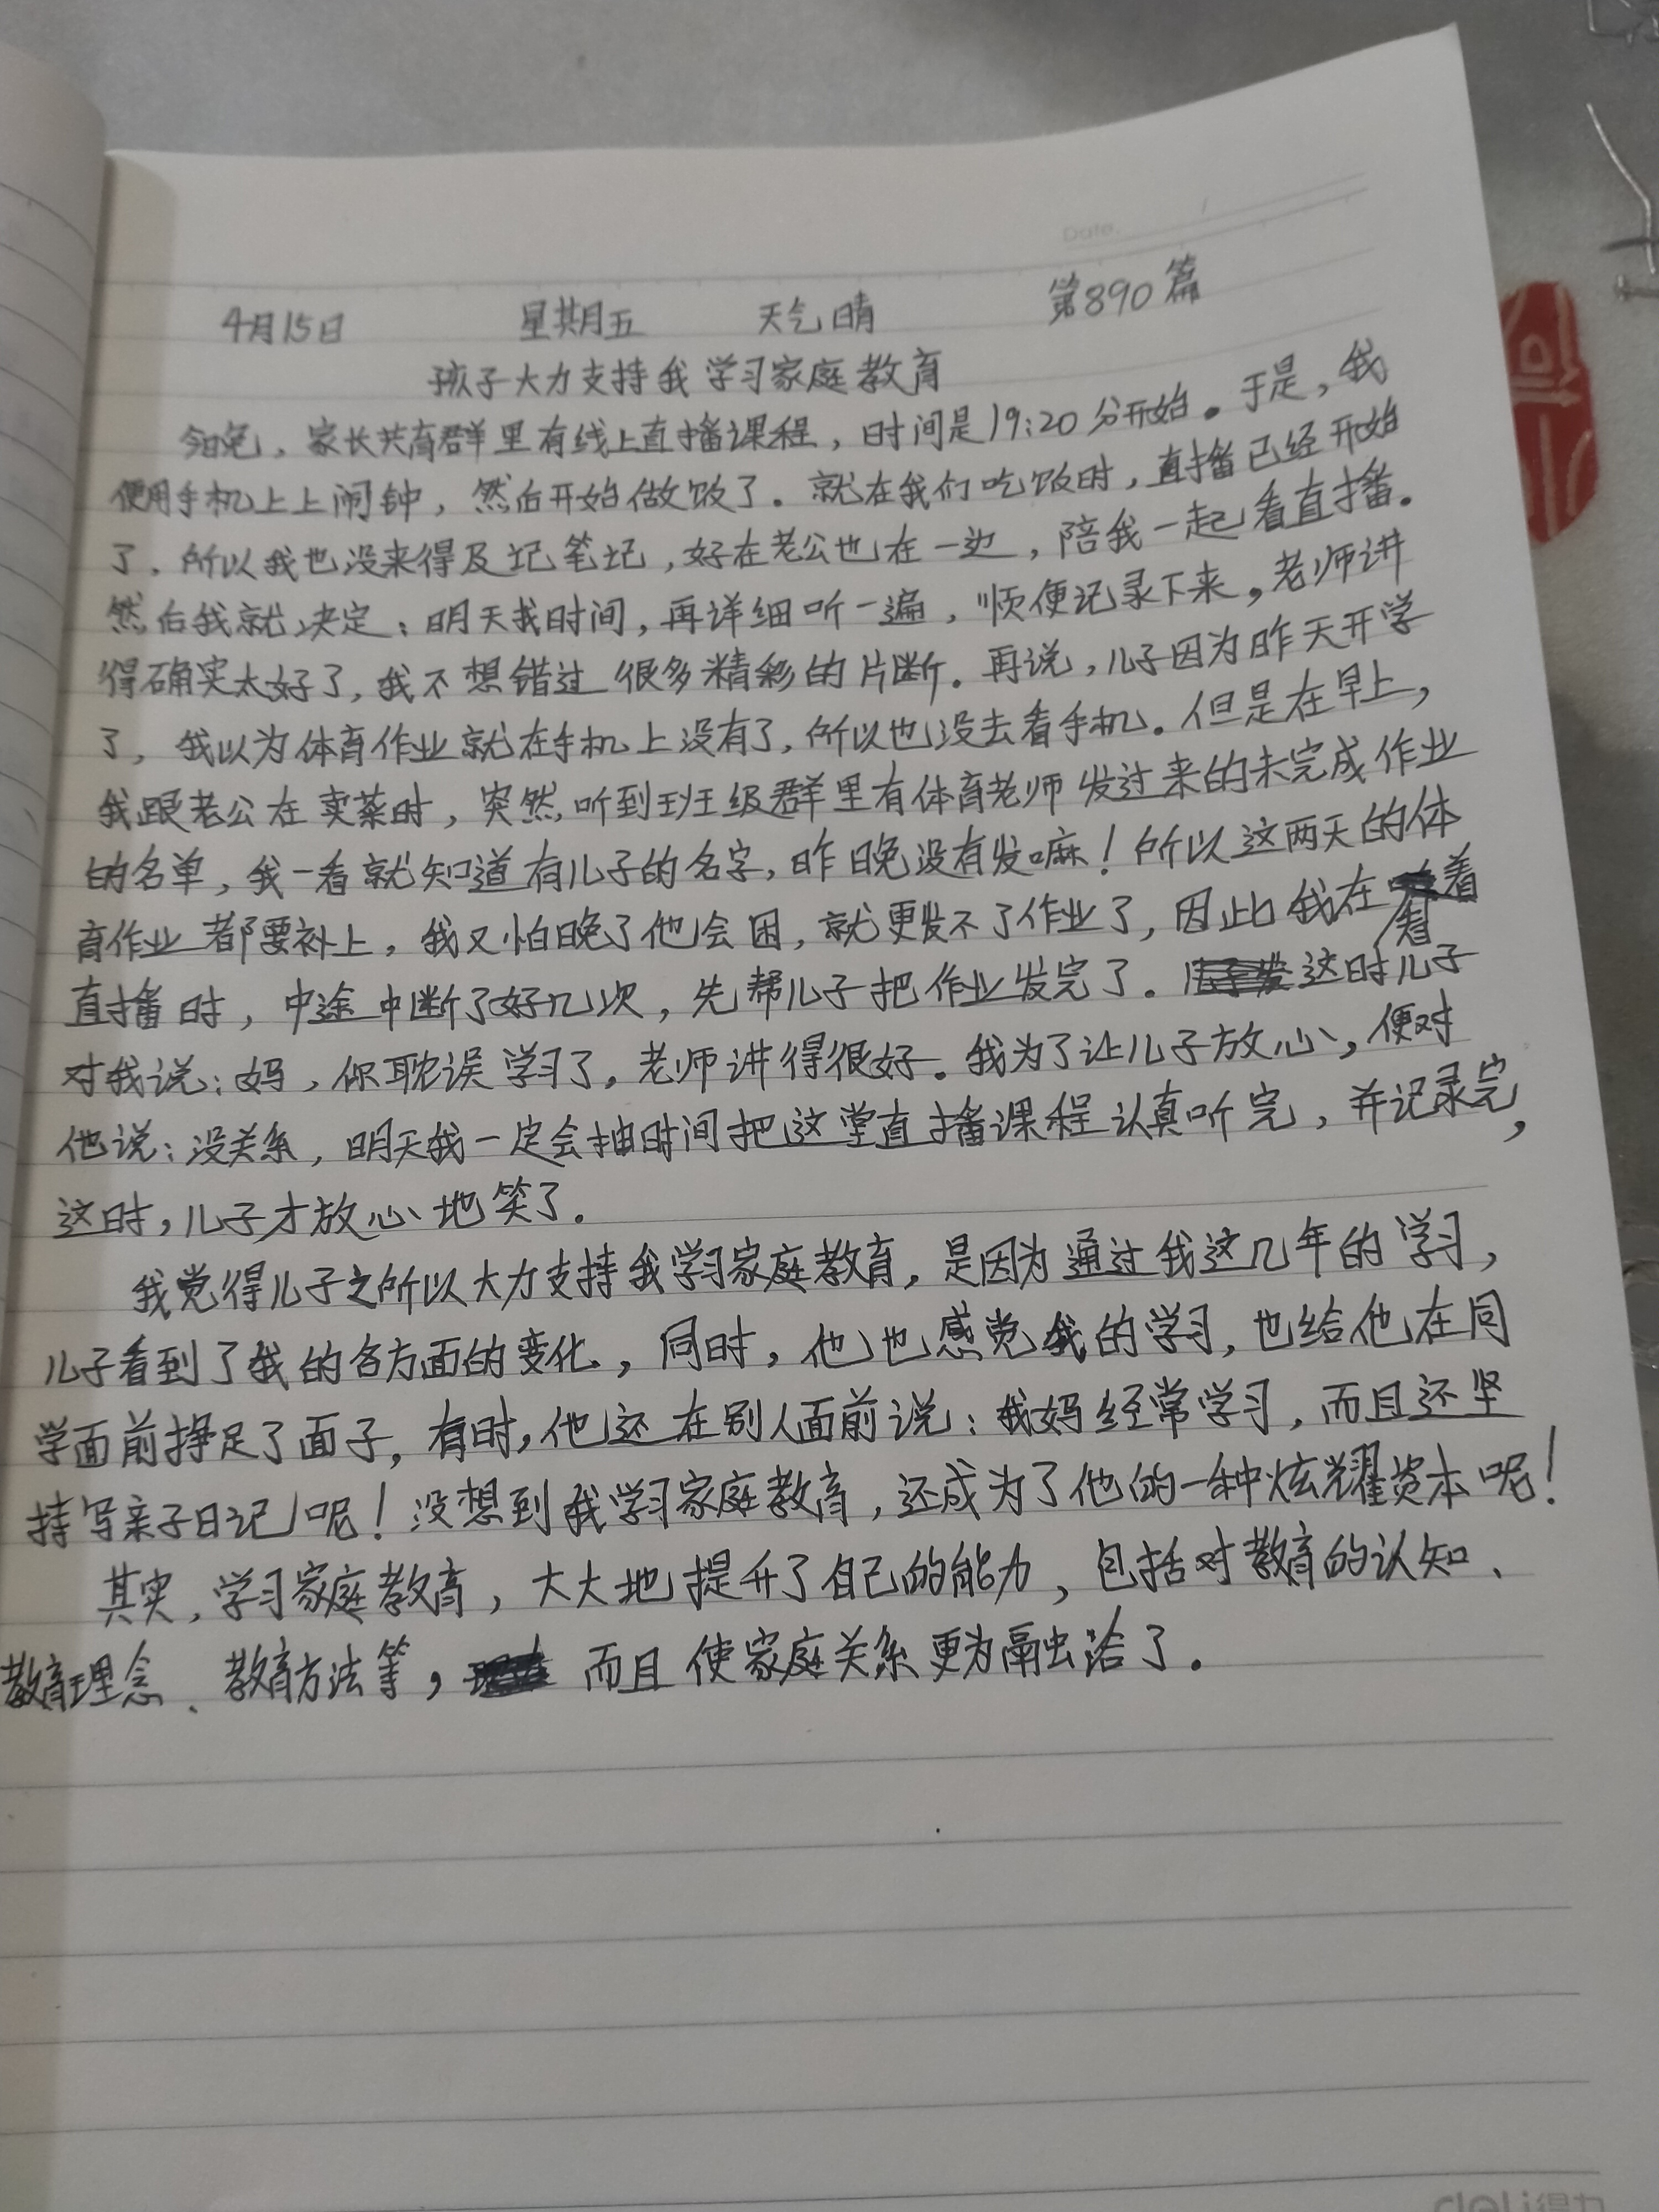 Date.
4月15日 星期五 天气晴 第890篇
孩子大力支持我学习家庭教育
今晚，家长共育群里有线上直播课程，时间是19:20分开始。于是，我
便用手机上上闹钟，然后开始做饭了。就在我们吃饭时，直播已经开始
了，所以我也没来得及记笔记，好在老公也在一边，陪我一起看直播。
然后我就决定：明天找时间，再详细听一遍，顺便记录下来，老师讲
得确实太好了，我不想错过很多精彩的片断。再说，儿子因为昨天开学
了，我以为体育作业就在手机上没有了，所以也没去看手机。但是在早上，
我跟老公在卖菜时，突然，听到班级群里有体育老师发过来的未完成作业
的名单，我一看就知道有儿子的名字，昨晚没有发嘛！所以这两天的体
育作业都要补上，我又怕晚了他会困，就更发不了作业了，因此我在看着
直播时，中途中断了好几次，先帮儿子把作业发完了。这时儿子
对我说：妈，你耽误学习了，老师讲得很好。我为了让儿子放心，便对
他说：没关系，明天我一定会抽时间把这堂直播课程认真听完，并记录完，
这时，儿子才放心地笑了。
我觉得儿子之所以大力支持我学习家庭教育，是因为通过我这几年的学习，
儿子看到了我的各方面的变化，同时，他也感觉我的学习，也给他在同
学面前挣足了面子，有时，他还在别人面前说：我妈经常学习，而且还坚
持写亲子日记呢！没想到我学习家庭教育，还成为了他的一种炫耀资本呢！
其实，学习家庭教育，大大地提升了自己的能力，包括对教育的认知、
教育理念、教育方法等，而且使家庭关系更为融洽了。
deli得力